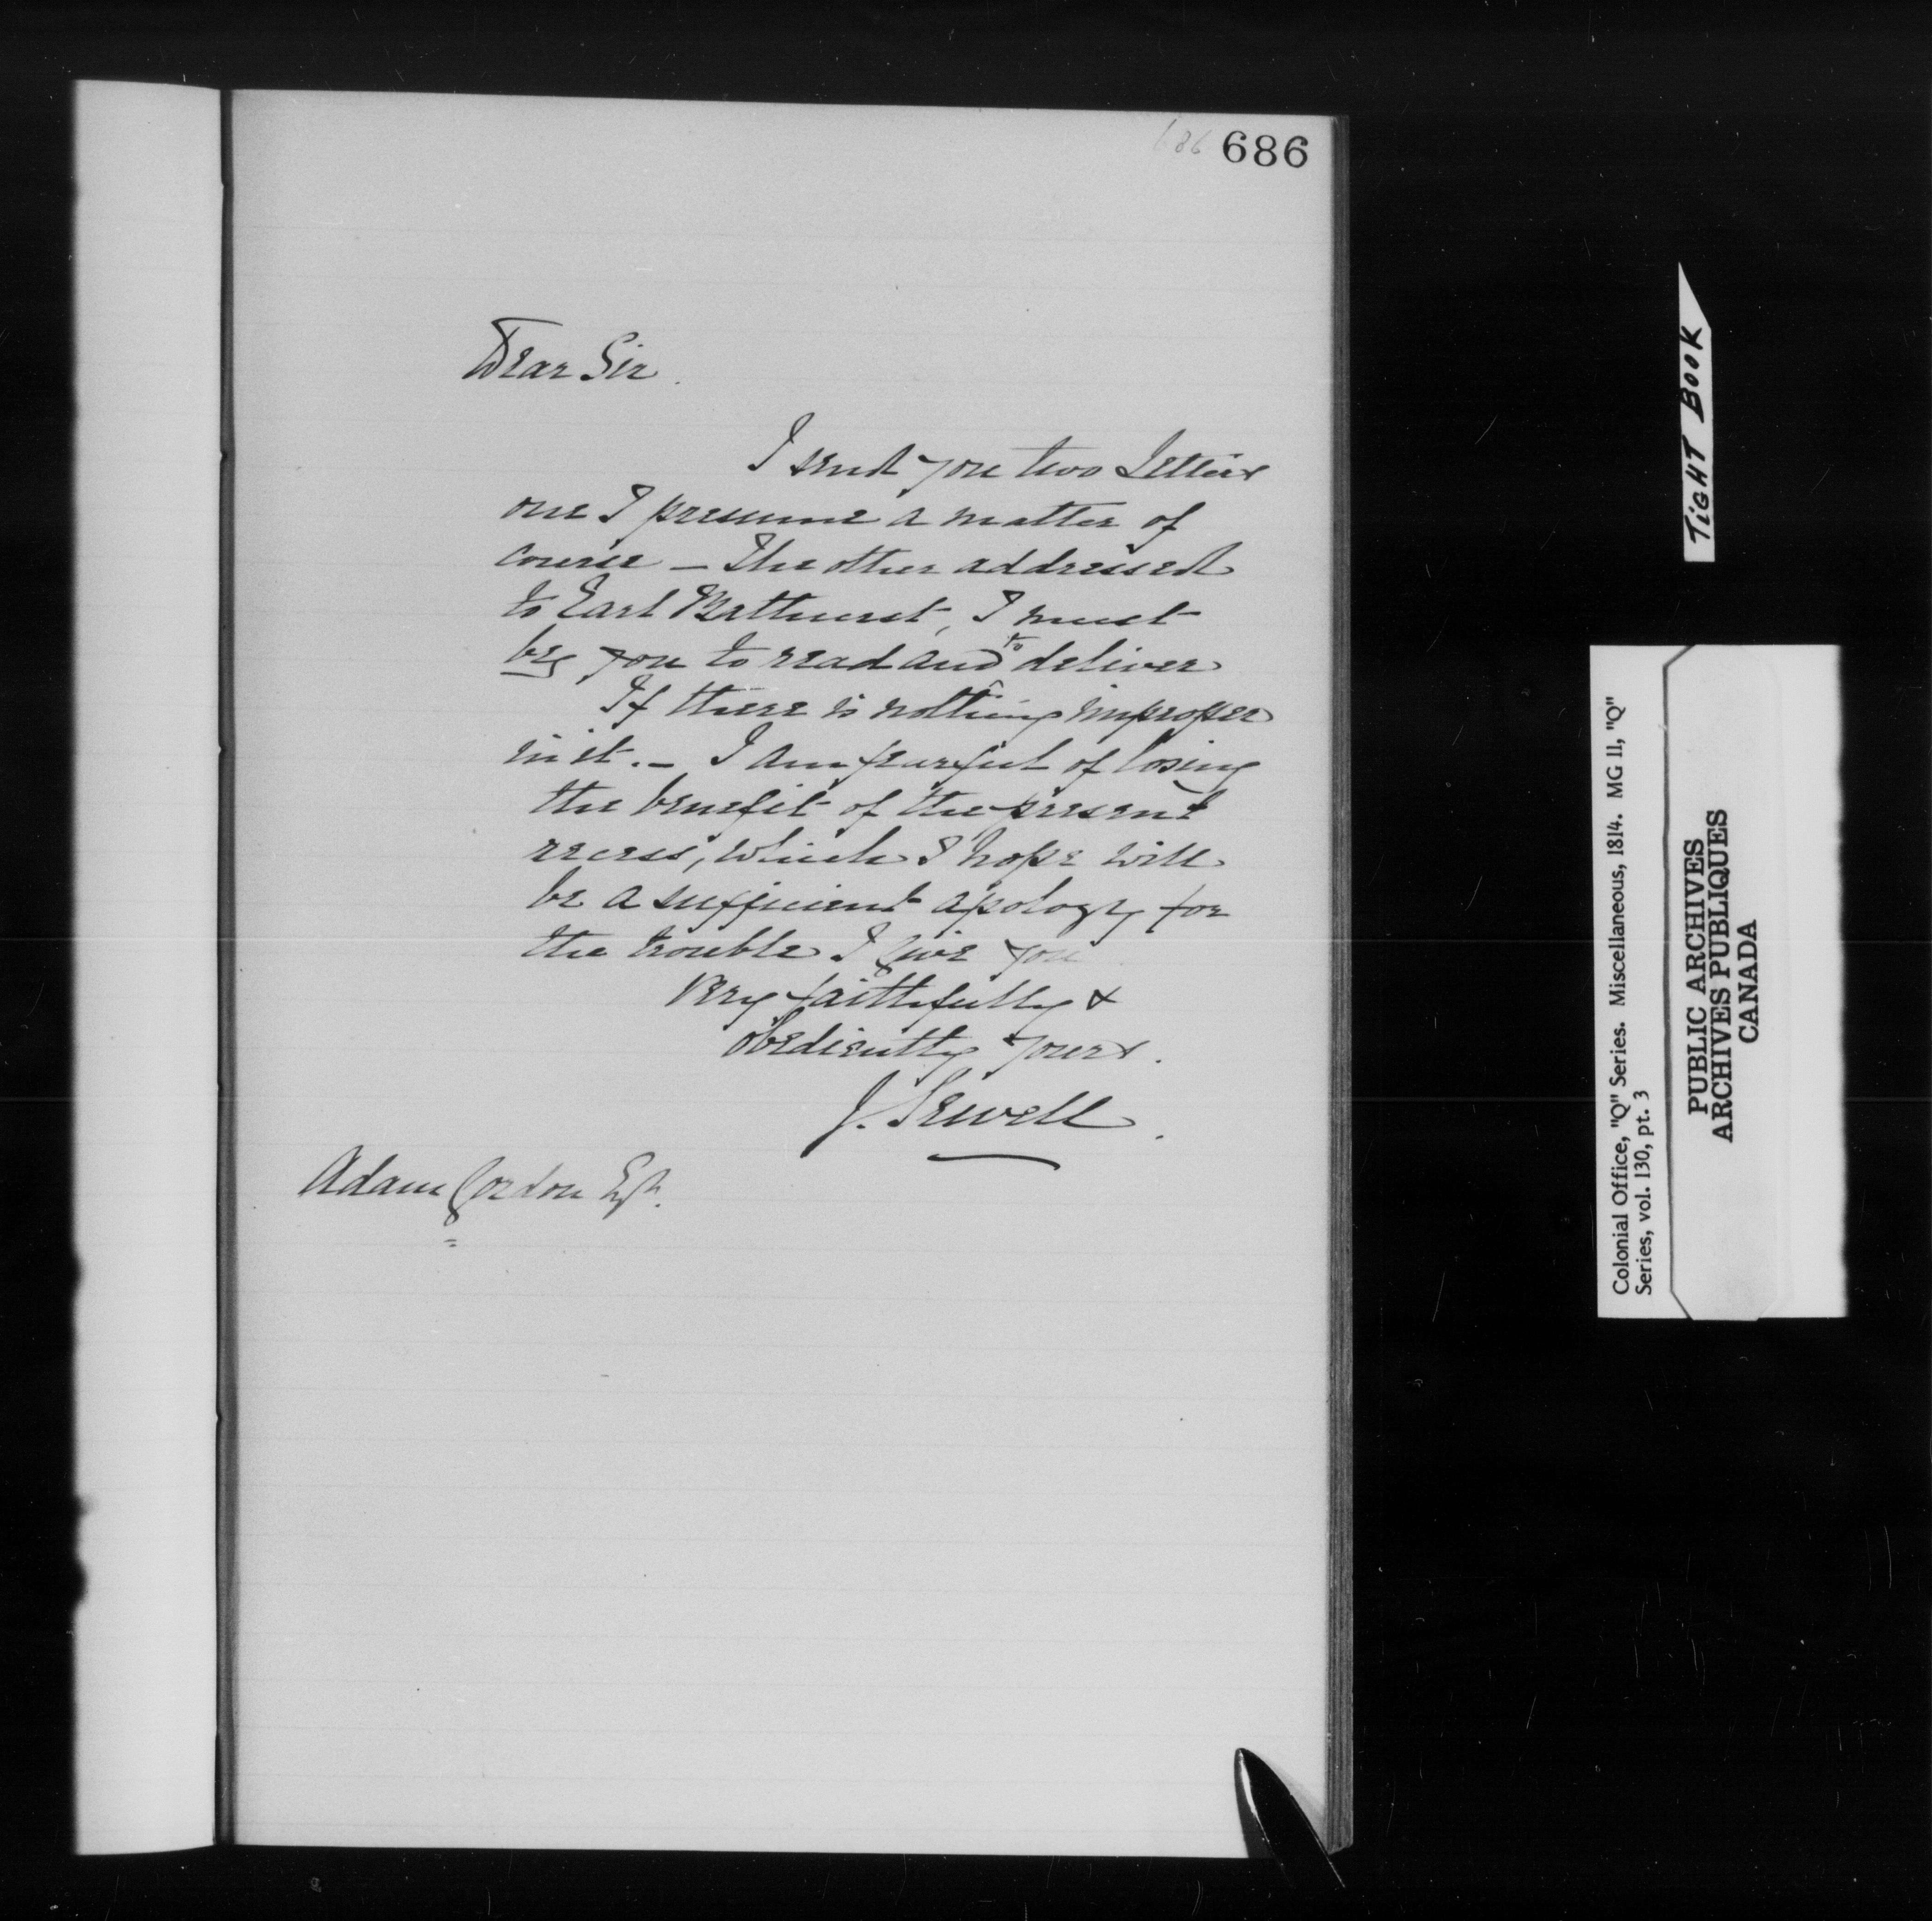 686 686
Dear Sir.
I send you two Letters
one I presume a matter of
course – The other addressed
to Earl Bathurst, I must
beg you to read and ^to deliver
If there is nothing improper
in it. – I am fearful of losing
the benefit of the present
recess, which I hope will
be a sufficient apology for
the trouble I give you
very faithfully &
obediently yours.
J. Sewell.
Adam Gordon Esqr.
TIGHT BOOK
Colonial Office, "Q" Series. Miscellaneous, 1814. MG 11, "Q"
Series, vol. 130, pt. 3
PUBLIC ARCHIVES
ARCHIVES PUBLIQUES
CANADA